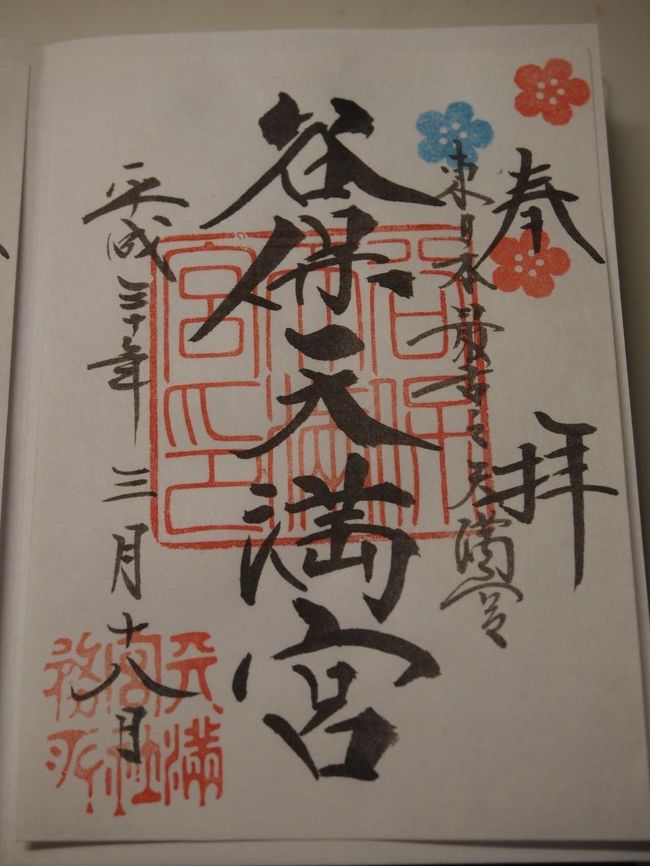 奉拝
東日本最古之天満宮
谷保天満宮
平成三十年三月十八日
谷保
天満
宮印
天満
宮社
務所